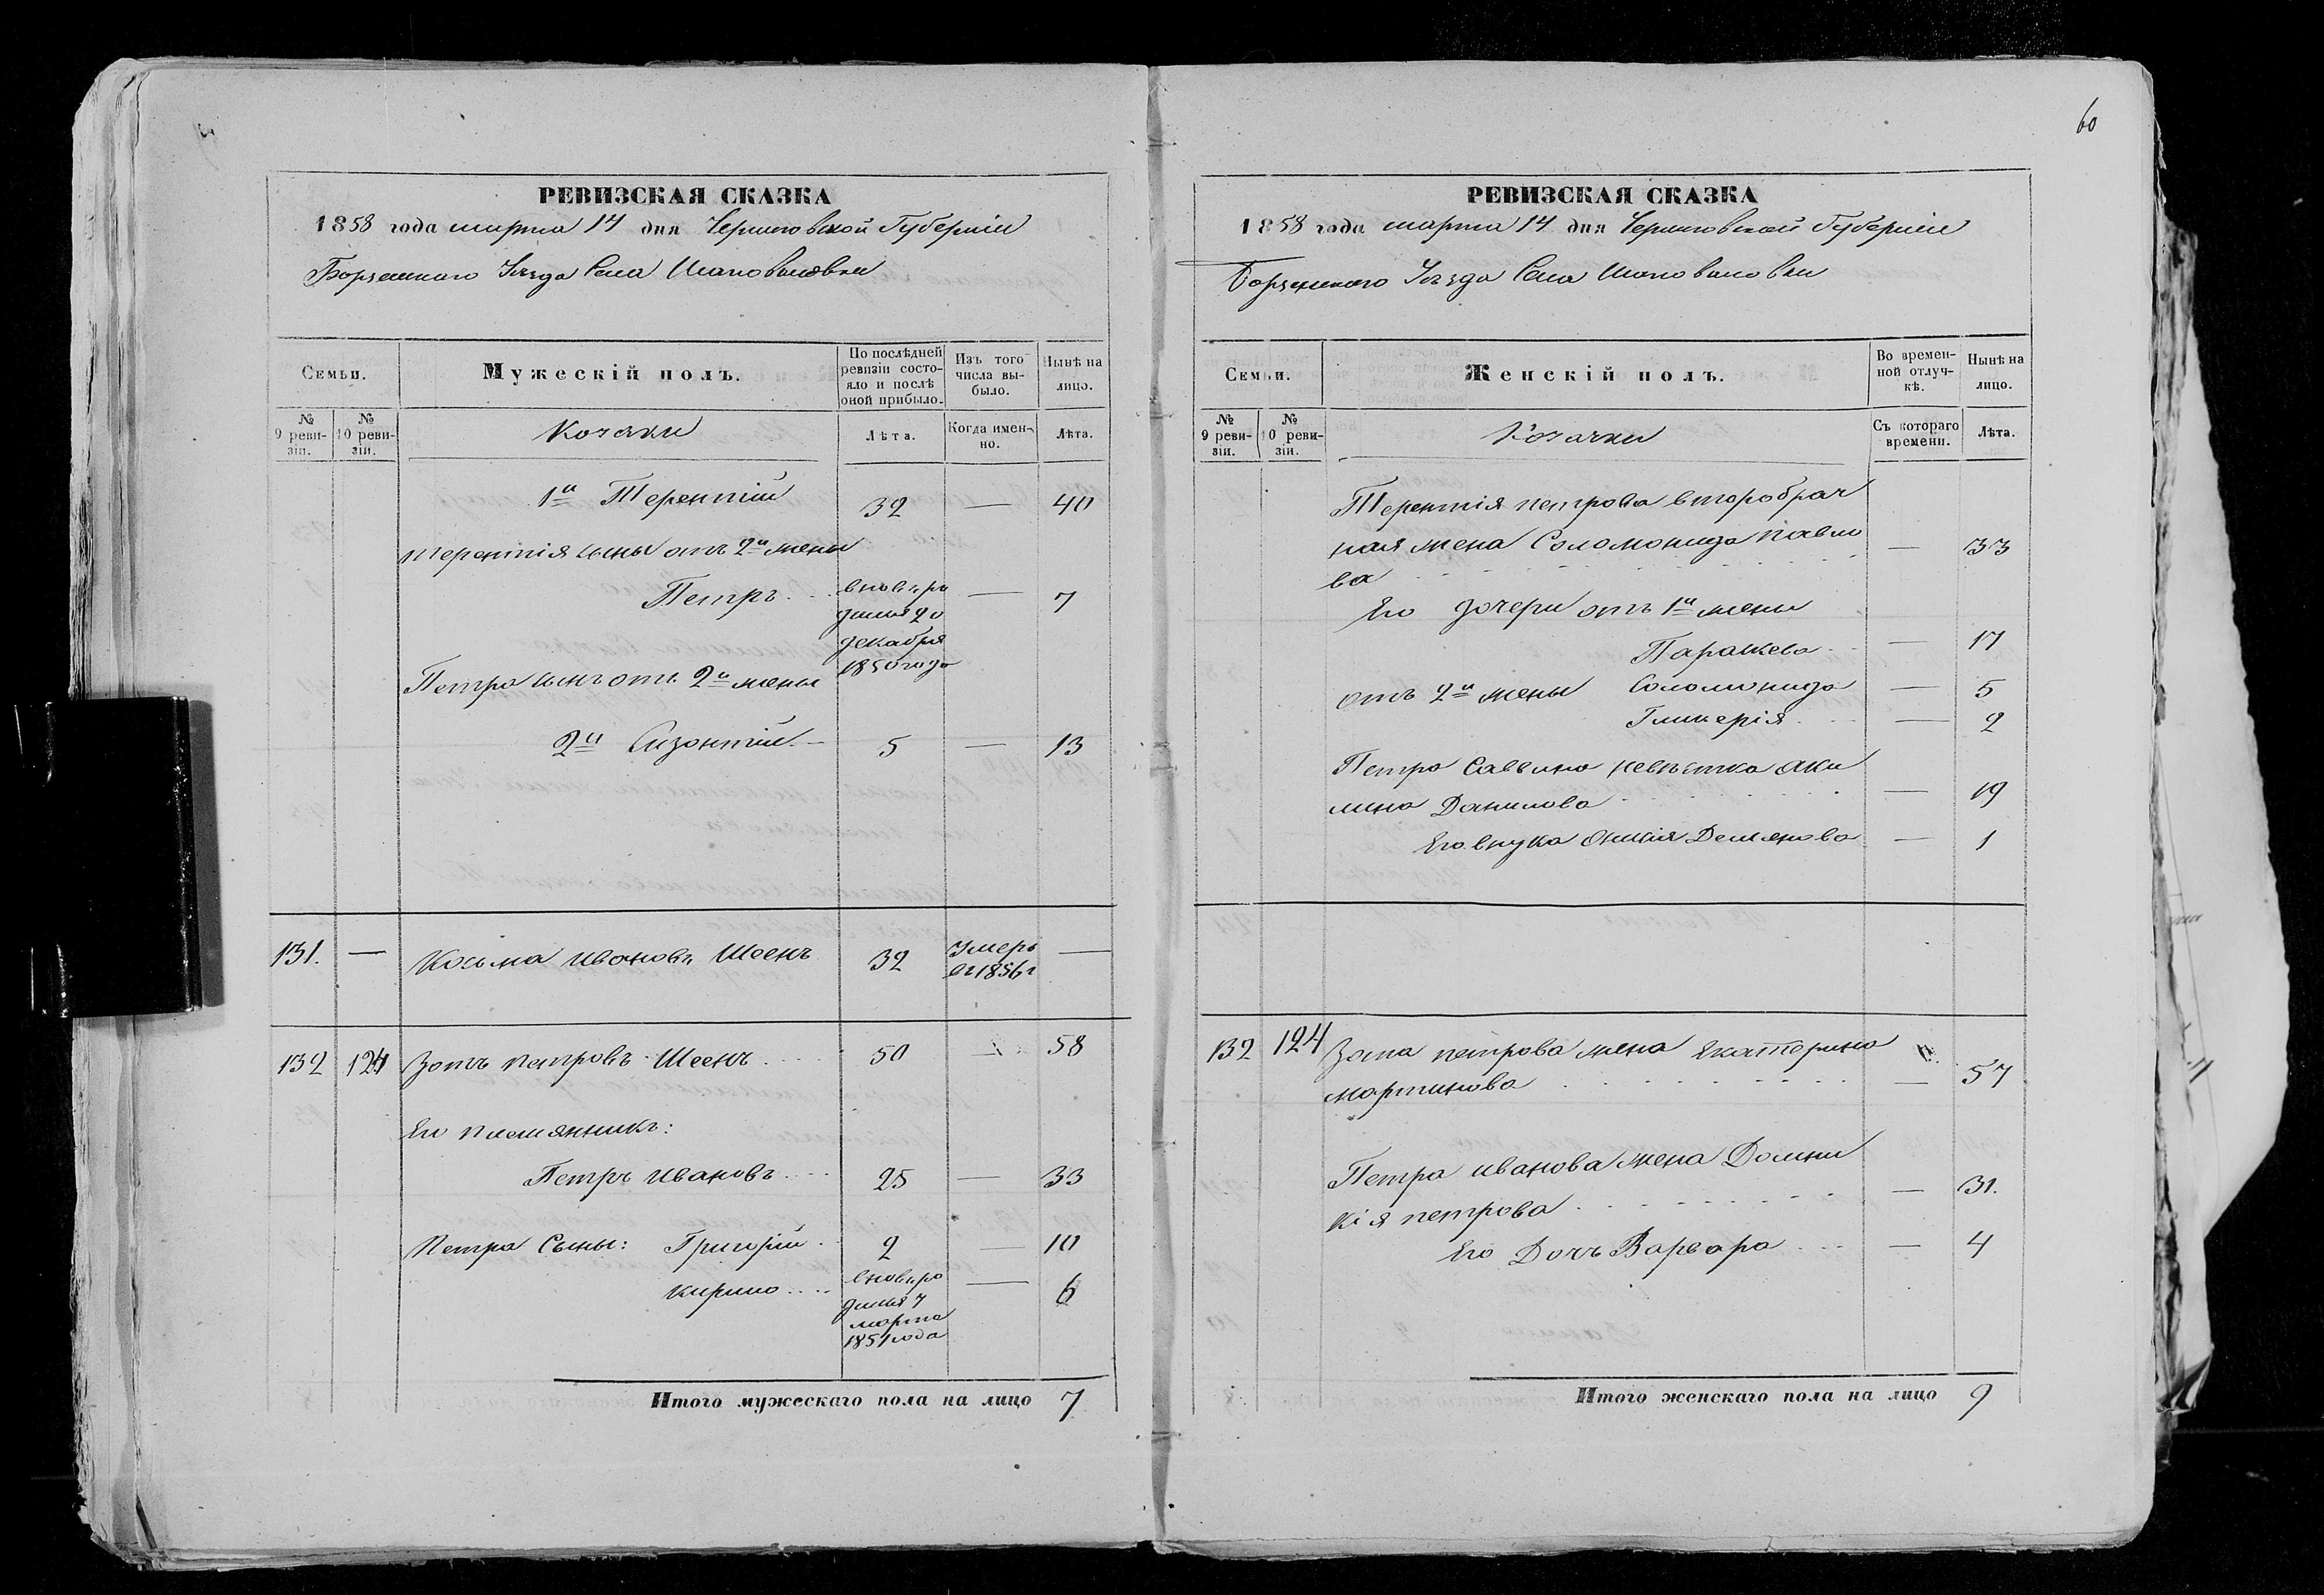 РЕВИЗСКАЯ СКАЗКА
1858 года марта 14 дня Черниговской Губерніи
Борзенскаго Уѣзда Села Шаповаловки
Семьи.
Мужескій полъ.
По послѣдней ревизіи состояло и послѣ оной прибыло.
Изъ того числа выбыло.
Нынѣ на лицо.
№ 9 ревизіи.
№ 10 ревизіи.
Козаки
Лѣта.
Когда именно.
Лѣта.
1й Терентій 32 — 40
Терентія сыны отъ 2й жены
Петръ . . вновь ро — 7
дился 20
декабря
1850 года
Петра сынъ отъ 2й жены
2й Сизонтій — 5 — 13
131. — Козьма Ивановъ Шеенъ 32 Умеръ —
въ 1856 г
132 124 Зотъ Петровъ Шеенъ . . . . 50 — 58
Его племянникъ:
Петръ Ивановъ . . . . 25 — 33
Петра Сыны: Григорій . 2 — 10
Кирило . . . . вновь ро — 6
дился 7
марта
1851 года
Итого мужескаго пола на лицо 7
60
РЕВИЗСКАЯ СКАЗКА
1858 года марта 14 дня Черниговской Губерніи
Борзенскаго Уѣзда Села Шаповаловки
Семьи.
Женскій полъ.
Во временной отлучкѣ.
Нынѣ на лицо.
№ 9 ревизіи.
№ 10 ревизіи.
Козачки
Съ котораго времени.
Лѣта.
Терентія Петрова второбрач
ная жена Соломонида Павло — 33
ва
Его дочери отъ 1й жены
Параскева . . — 17
отъ 2й жены Соломонида — 5
Гликерія . . — 2
Петра Саввина невѣстка Аки
лина Данилова . . . — 19
Его внука Димянова — 1
132 124 Зота Петрова жена Екатерина
Мартинова . . . — 57
Петра Иванова жена Домни
кія Петрова . . . — 31.
Его Дочь Варвара . . . — 4
Итого женскаго пола на лицо 9